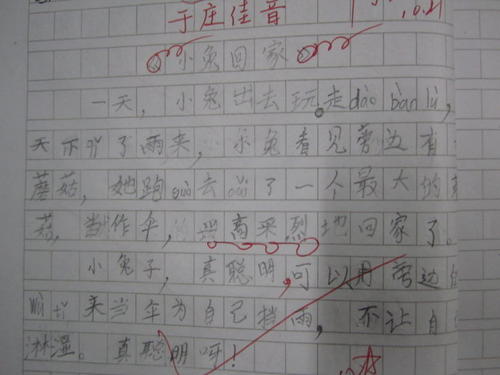 于庄佳音
小兔回家
一天，小兔出去玩。走dào bàn lù，
天下qǐ了雨来，小兔看见旁边有
蘑菇，她跑guò去 cǎi了一个最大的
菇，当作伞，兴高采烈地回家了。
小兔子，真聪明，可以用旁边
Wù tǐ来当伞为自己挡雨，不让自
淋湿。真聪明呀！